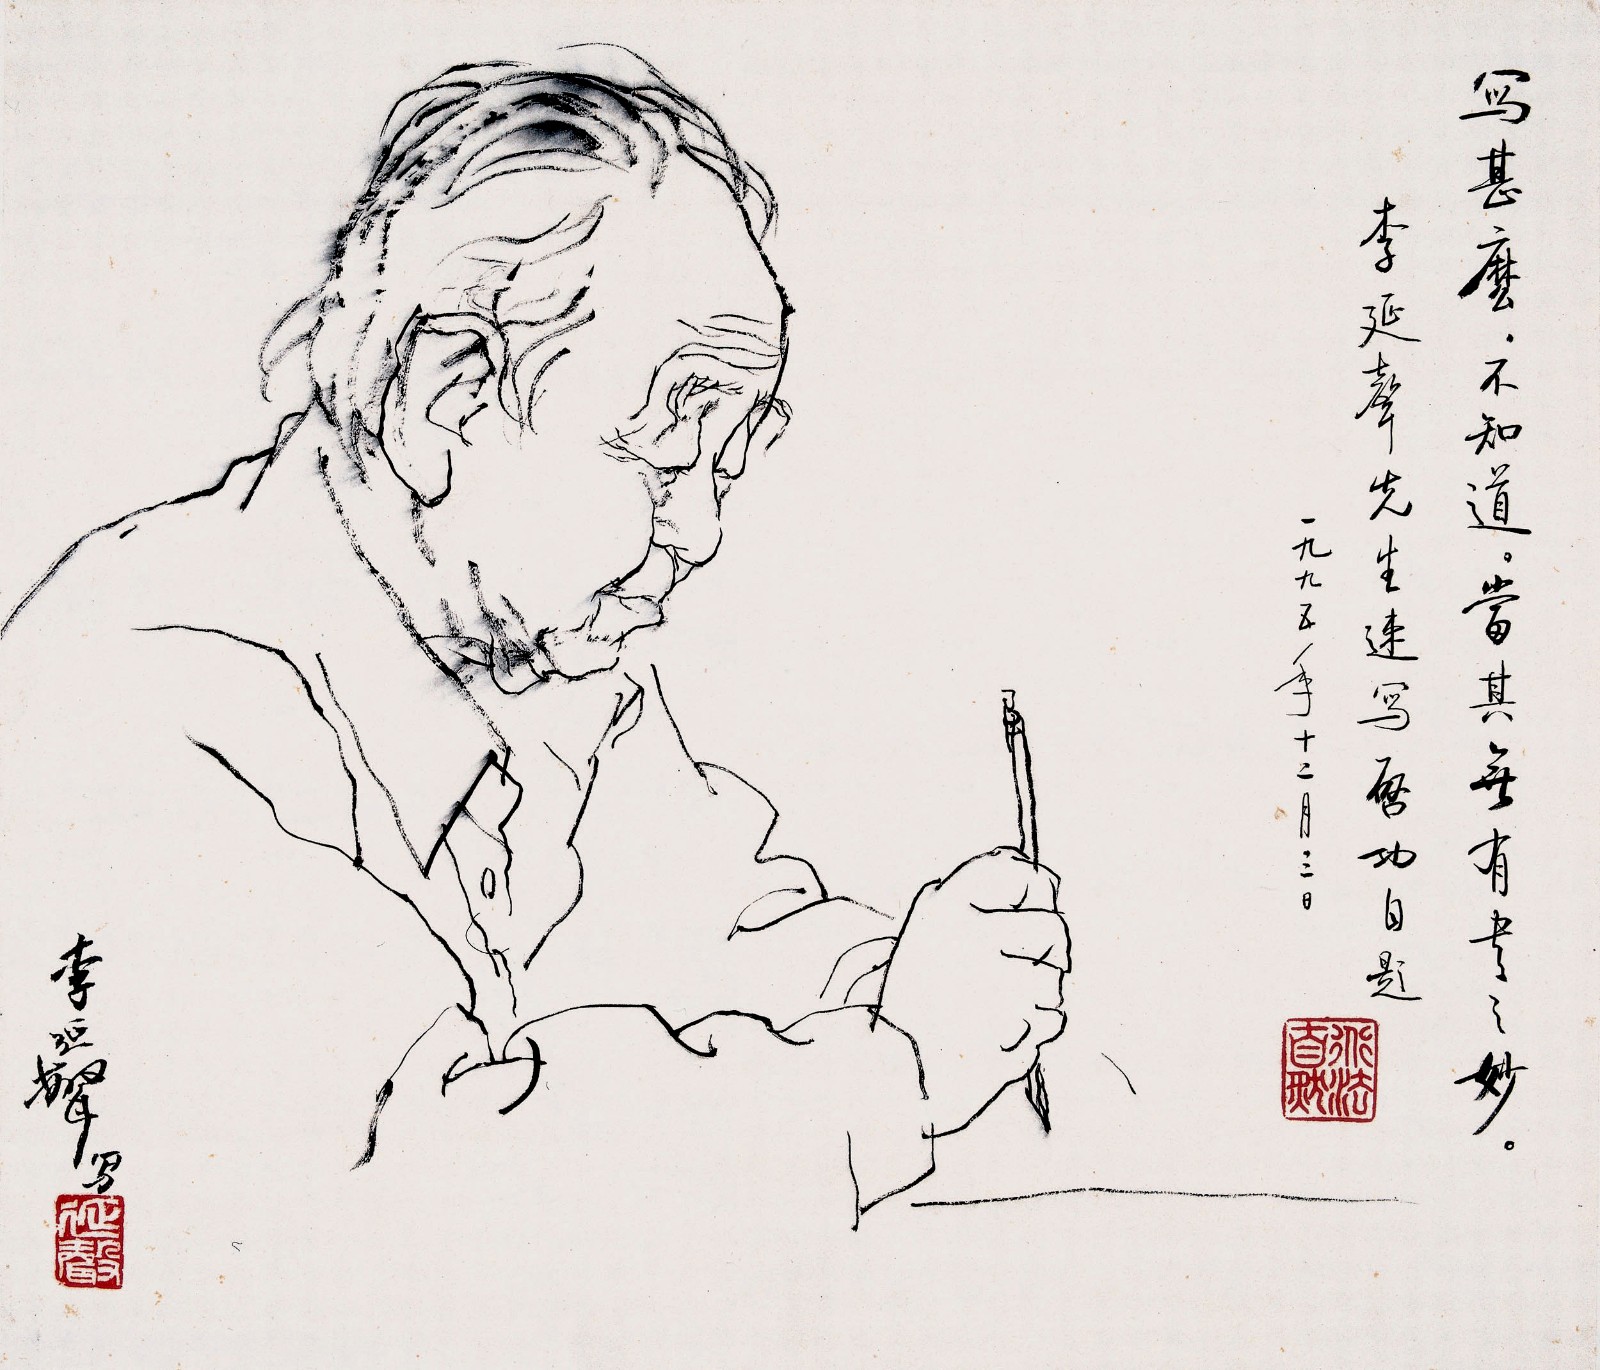 寫甚麼，不知道。當其無有書之妙。
李延聲先生速写启功自題
一九九五年十二月三日
李延聲写
延聲